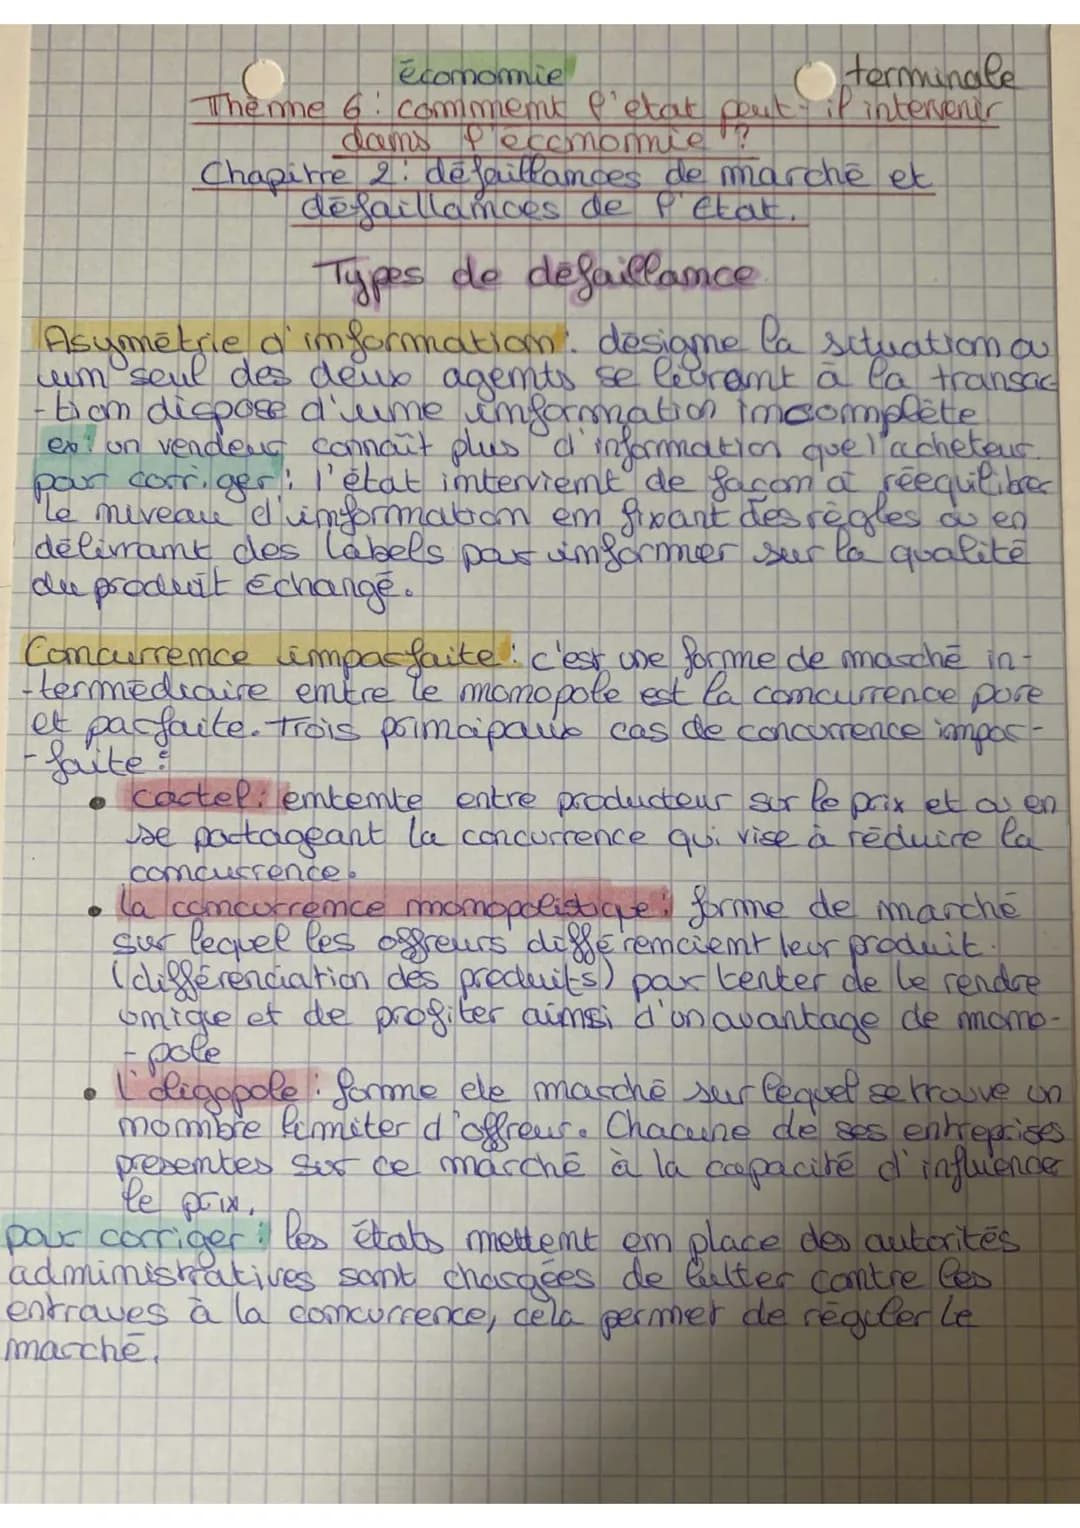 économie
terminale
Thème 6 : comment l'état peut-il intervenir
dans l'économie ?
Chapitre 2 : défaillances de marché et
défaillances de l'Etat.
Types de défaillance
Asymétrie d'information : désigne la situation ou
un seul des deux agents se livrant à la transac
-tion dispose d'une information incomplète
ex : un vendeur connaît plus d'information que l'acheteur.
pour corriger : l'état intervient de façon à rééquilibrer
le niveau d'information en fixant des règles ou en
délivrant des labels pour informer sur la qualité
du produit échangé.
Concurrence imparfaite : c'est une forme de marché in-
-termédiaire entre le monopole est la concurrence pure
et parfaite. Trois principaux cas de concurrence impar-
-faite :
• cartel : entente entre producteur sur le prix et ou en
se partageant la concurrence qui vise à réduire la
concurrence.
• la concurrence monopolistique : forme de marché
sur lequel les offreurs différencient leur produit.
(différenciation des produits) pour tenter de le rendre
unique et de profiter ainsi d'un avantage de mono-
-pole
• l'oligopole : forme de marché sur lequel se trouve un
nombre limiter d'offreur. Chacune de ses entreprises
presentes sur ce marché à la capacité d'influence
le prix.
pour corriger : les états mettent en place des autorités
administratives sont chargées de lutter contre les
entraves à la concurrence, cela permet de réguler le
marché.